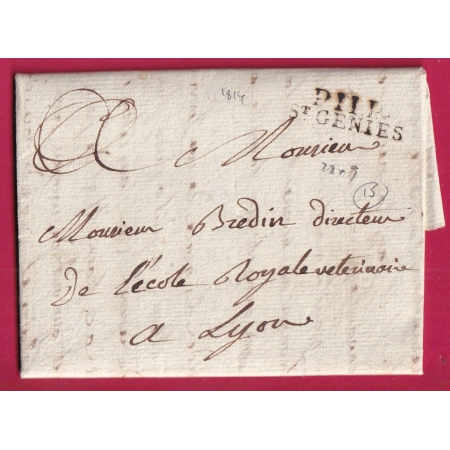 1814
P.11.P.
ST GENIES
A Monsieur
Monsieur Bredin directeur
De l'école Royale veterinaire
a Lyon
13